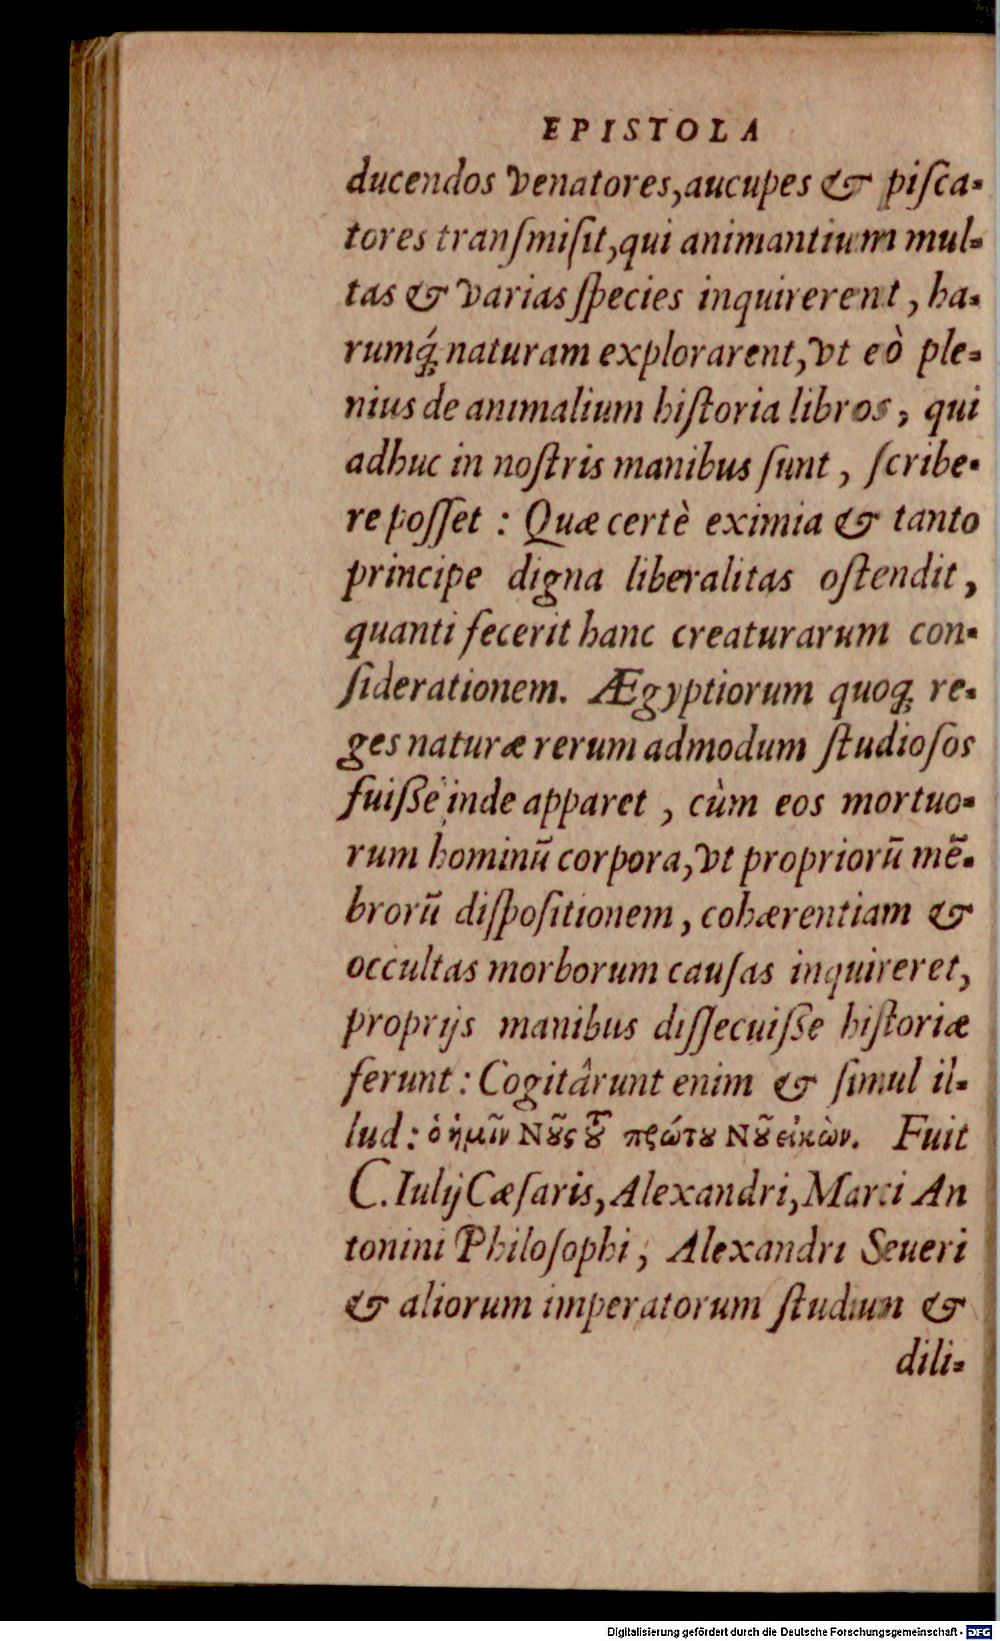 EPISTOLA
ducendos venatores, aucupes & piſca-
tores tranſmiſit, qui animantium mul-
tas & varias ſpecies inquirerent, ha-
rumq́ꝫ naturam explorarent, vt eò ple-
nius de animalium hiſtoria libros, qui
adhuc in noſtris manibus ſunt, ſcribe-
re poſſet : Quæ certè eximia & tanto
principe digna liberalitas oſtendit,
quanti fecerit hanc creaturarum con-
ſiderationem. Ægyptiorum quoqꝫ re-
ges naturæ rerum admodum ſtudioſos
fuiſſe inde apparet, cùm eos mortuo-
rum hominū corpora, vt propriorū mē-
brorū diſpoſitionem, cohærentiam &
occultas morborum cauſas inquireret,
proprijs manibus diſſecuiſſe hiſtoriæ
ferunt : Cogitârunt enim & ſimul il-
lud : ὁ ἡμῖν Νȣ͂ς τȣ͂ πρώτȣ Νȣ͂ εἰκὼν. Fuit
C. Iulij Cæſaris, Alexandri, Marci An
tonini Philoſophi, Alexandri Seueri
& aliorum imperatorum ſtudium &
dili-
Digitalisierung gefördert durch die Deutsche Forschungsgemeinschaft - DFG